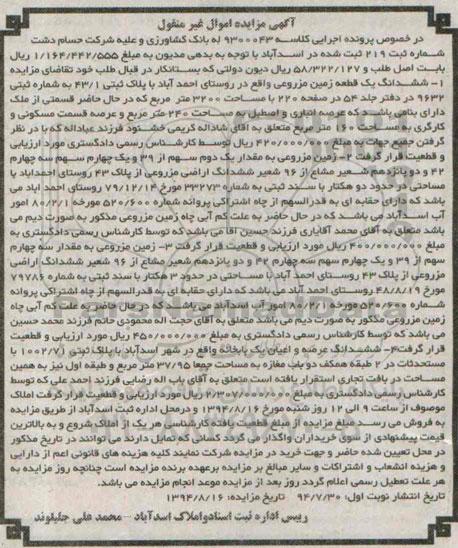 آگهی مزایده اموال غیر منقول
در خصوص پرونده اجرایی کلاسه ۹۳۰۰۰۴۳ له بانک کشاورزی و علیه شرکت حسام دشت
شماره ثبت ۲۱۹ ثبت شده در اسدآباد با توجه به بدهی مدیون به مبلغ ۱/۱۶۴/۴۴۲/۵۵۵ ریال
بابت اصل طلب و ۵۸/۳۲۲/۱۲۷ ریال دیون دولتی که بستانکار در قبال طلب خود تقاضای مزایده
۱- ششدانگ یک قطعه زمین مزروعی واقع در روستای احمد آباد با پلاک ثبتی ۴۳/۱ به شماره ثبتی
۹۶۳۲ در دفتر جلد ۵۴ در صفحه ۲۲۰ با مساحت ۳۲۰۰ متر مربع که در حال حاضر قسمتی از ملک
دارای بنامی باشند که عرصه انباری و اصطبل به مساحت ۲۴۰ متر مربع و عرصه قسمت مسکونی و
کارگری به مساحت ۱۶۰ متر مربع متعلق به آقای شاداله کریمی خشنود فرزند عباداله که با در نظر
گرفتن جمیع جهات به مبلغ ۴۲۰/۰۰۰/۰۰۰ ریال توسط کارشناس رسمی دادگستری مورد ارزیابی
و قطعیت قرار گرفت ۲- زمین مزروعی به مقدار یک دوم سهم از ۳۹ و یک چهارم سهم سه چهارم
۴۲ و دو پانزدهم شعیر مشاع از ۹۶ شعیر ششدانگ اراضی مزروعی از پلاک ۴۳ روستای احمداباد با
مساحتی در حدود دو هکتار با سند ثبتی به شماره ۳۳۲۷۳ مورخ ۷۹/۱۲/۱۴ روستای احمد اباد می
باشد که دارای حقابه ای به قدرالسهم از چاه اشتراکی پروانه شماره ۵۲۰/۶۰۰ مورخه ۸۰/۲/۱ امور
آب اسدآباد می باشد که در حال حاضر به علت کم آبی چاه زمین مزروعی مذکور به صورت دیم می
باشد متعلق به آقای محمد آقایاری فرزند حسین آقا می باشد که توسط کارشناس رسمی دادگستری به
مبلغ ۴۰۰/۰۰۰/۰۰۰ ریال مورد ارزیابی و قطعیت قرار گرفت ۳- زمین مزروعی به مقدار سه چهارم
سهم از ۳۹ و یک چهارم سهم سه چهارم ۴۲ و دو پانزدهم شعیر مشاع از ۹۶ شعیر ششدانگ اراضی
مزروعی از پلاک ۴۳ روستای احمد آباد با مساحتی در حدود ۳ هکتار با سند ثبتی به شماره ۷۹۷۸۶
مورخ ۴۸/۸/۱۹ روستای احمد آباد می باشد که دارای حقابه ای به قدرالسهم از چاه اشتراکی پروانه
شماره ۵۲۰/۶۰۰ مورخ ۸۰/۲/۱ امور آب اسدآباد می باشد که در حال حاضر به علت کم آبی چاه
زمین مزروعی مذکور به صورت دیم می باشد متعلق به آقای حجت اله محمودی حاتم فرزند محمد حسین
می باشد که توسط کارشناس رسمی دادگستری به مبلغ ۴۵۰/۰۰۰/۰۰۰ ریال مورد ارزیابی و قطعیت
قرار گرفت ۴- ششدانگ عرصه و اعیان یک بابخانه واقع در شهر اسدآباد با پلاک ثبتی ۱۰۰۲/۷۱ با
مستحدثات در ۲ طبقه همکف دو باب مغازه به مساحت جمعا ۳۷/۹۵ متر مربع و طبقه اول نیز به همین
مساحت در بافت تجاری استقرار یافته است متعلق به آقای باب اله رضایی فرزند احمد علی که توسط
کارشناس رسمی دادگستری به مبلغ ۲/۳۰۷/۰۰۰/۰۰۰ ریال مورد ارزیابی و قطعیت قرار گرفت املاک
موصوف از ساعت ۹ الی ۱۲ روز شنبه مورخ ۱۳۹۴/۸/۱۶ و درمحل اداره ثبت اسدآباد از طریق مزایده
به فروش می رسد مبلغ مزایده از مبلغ قطعیت یافته کارشناسی هر یک از املاک شروع و به بالاترین
قیمت پیشنهادی از سوی خریداران واگذار می گردد کسانی که تمایل دارند می توانند در تاریخ مذکور
در محل تعیین شده حاضر و جهت خرید در مزایده شرکت نمایند کلیه هزینه های قانونی اعم از دارایی
و هزینه انشعاب و اشتراکات و سایر مبالغ بر مزایده برعهده برنده مزایده است چنانچه روز مزایده به
هر علت تعطیل رسمی اعلام گردد روز بعد از مزایده موعد انجام مزایده می باشد.
تاریخ انتشار نوبت اول: ۹۴/۷/۳۰ تاریخ مزایده: ۱۳۹۴/۸/۱۶
رییس اداره ثبت اسنادواملاک اسدآباد – محمد علی جلیلوند